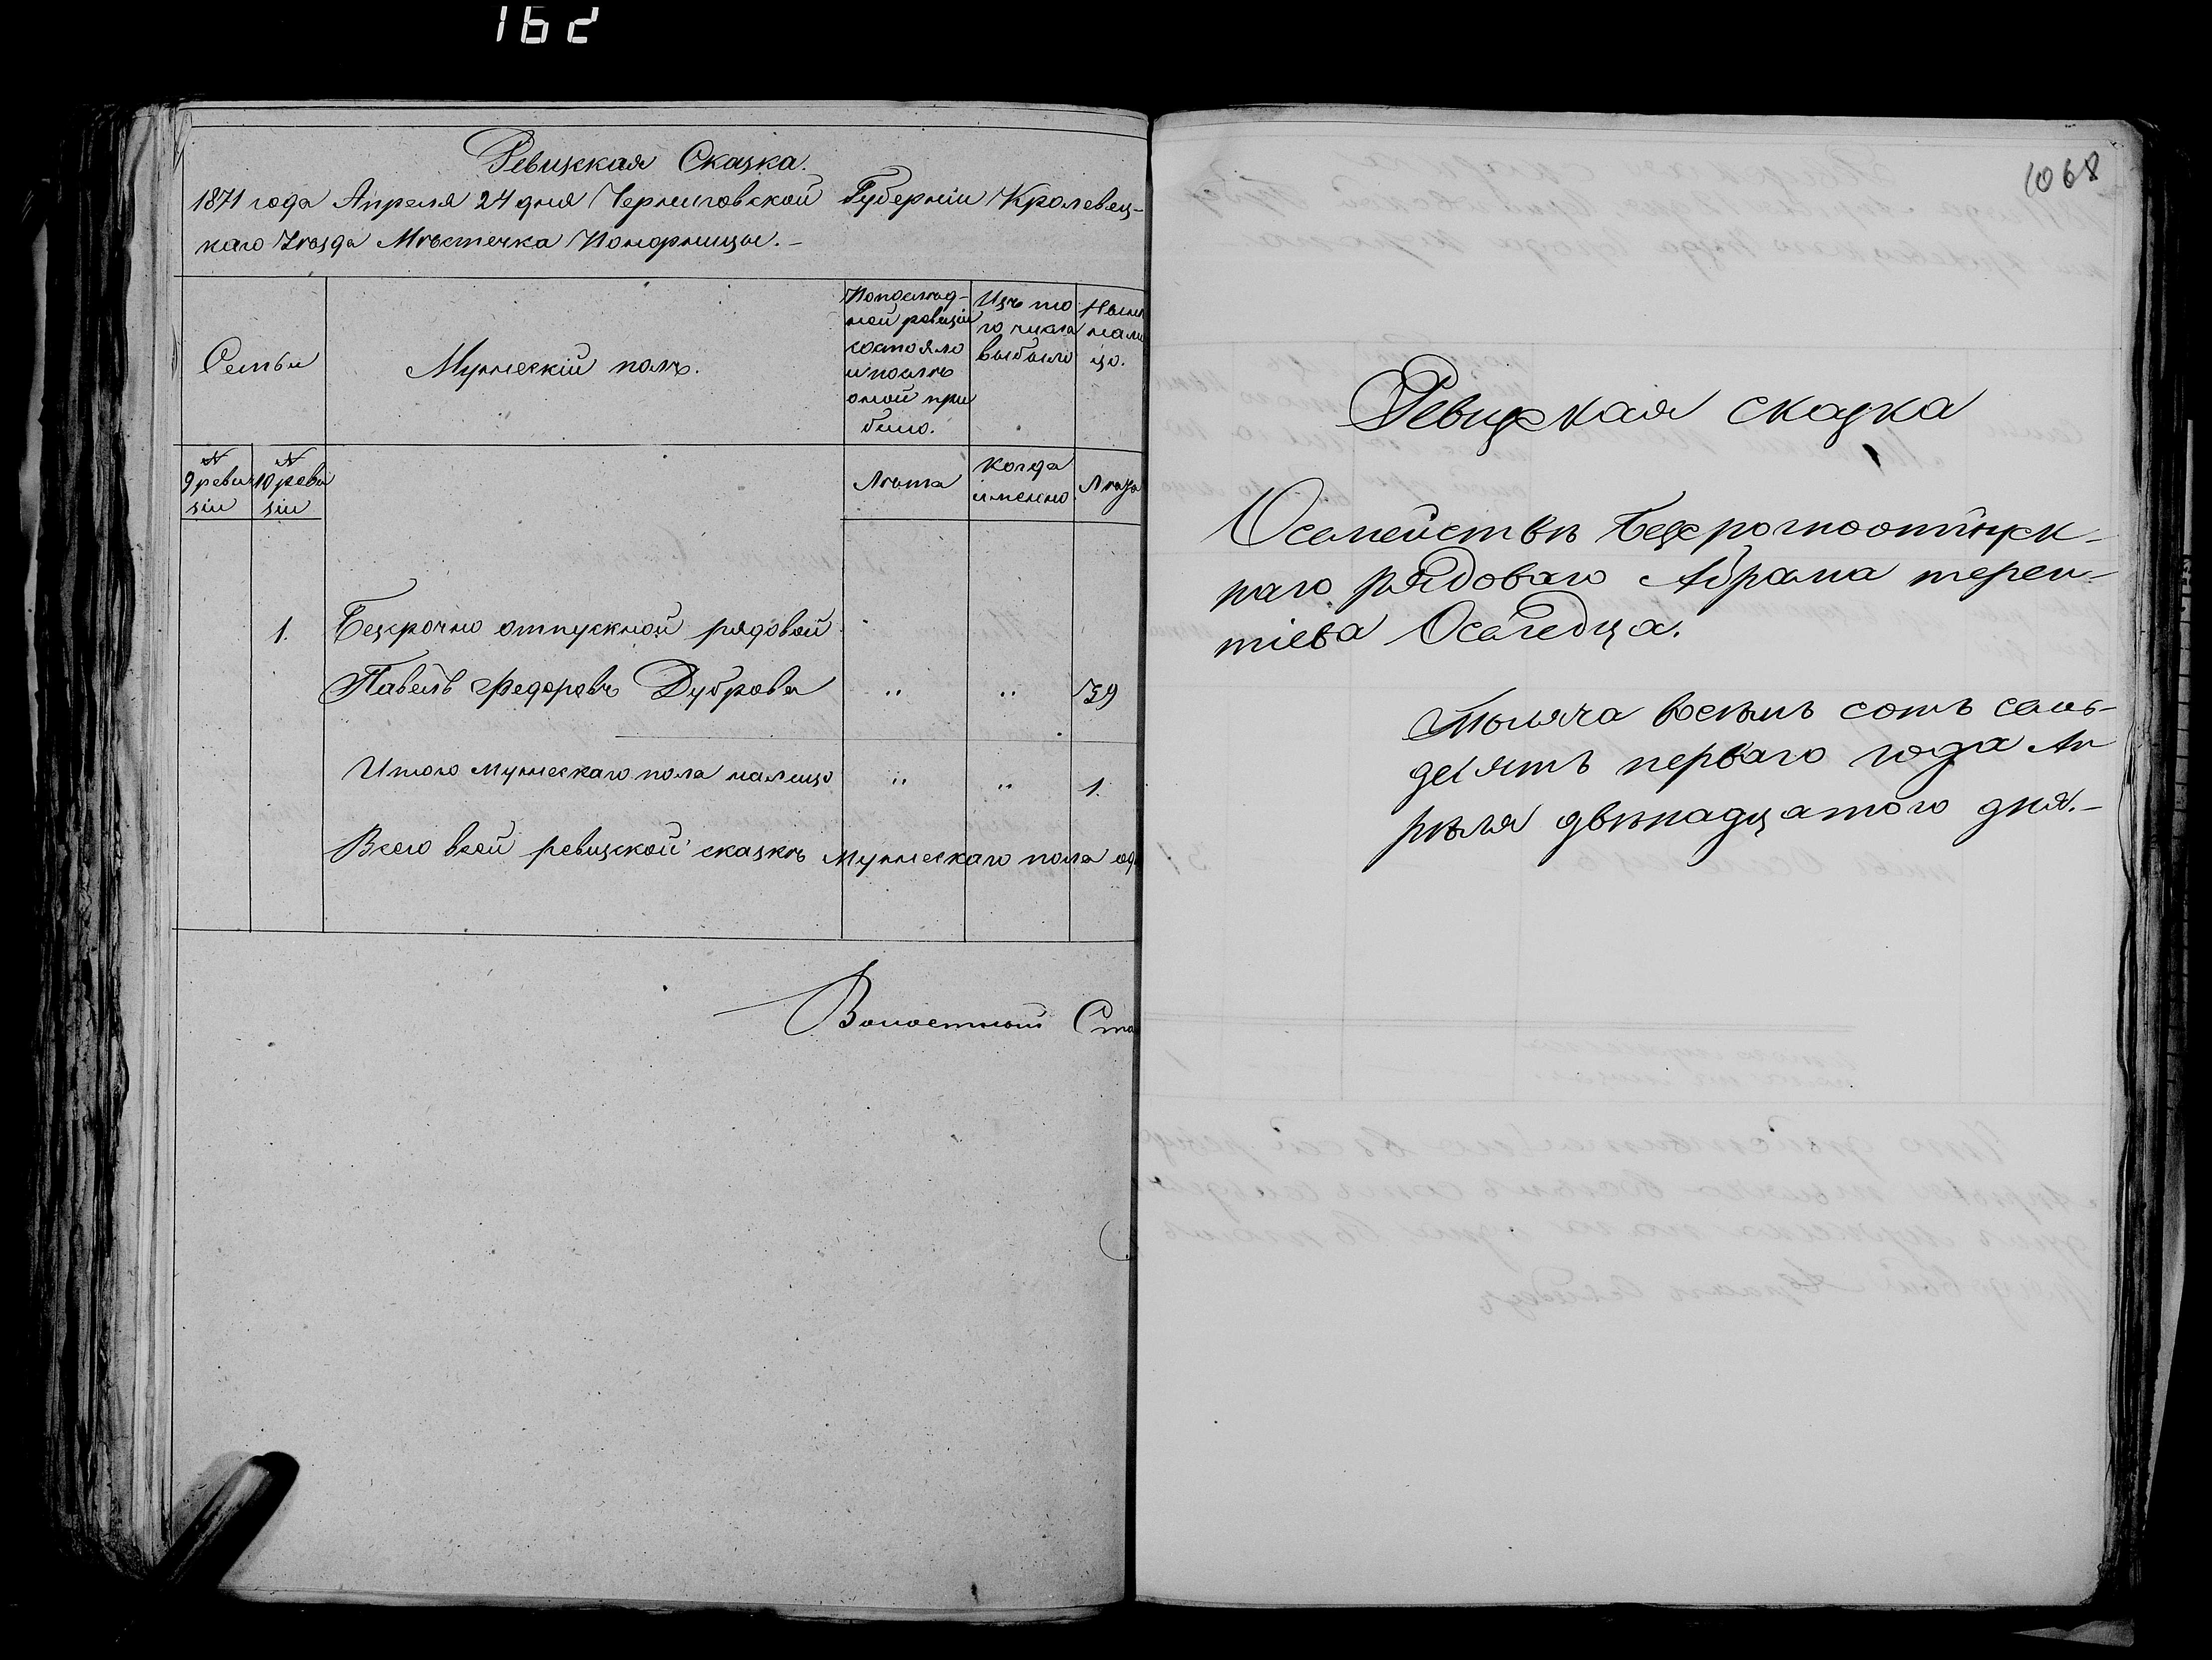 162
Ревизкая Сказка.
1871 года Апреля 24 дня Черниговской Губерніи Кролевец-
каго Уѣзда Мѣстечка Понорницы. –
Семьи
Мужескій полъ.
Попослѣд-
ней ревизіи
состояло
и послѣ
оной при
было.
Изъ то
го числа
выбыло
Нынѣ
нали
цо.
№
9 реви
зіи
№
10 реви
зіи
Лѣта
Когда
именно
Лѣта
1. Безсрочно отпускной рядовой
Павелъ Федоровъ Дуброва " " 39
Итого мужескаго пола налицо " " 1.
Всего всей ревизской сказкѣ мужескаго пола од
Волостной Ста
1068
Ревизская сказка
Осемействѣ безсрочноотпуск-
наго рядоваго Абрама терен-
тіева Оселедца.
Тысяча восемь сотъ семь-
десятъ перваго года Ап
рѣля двѣнадцатого дня. –